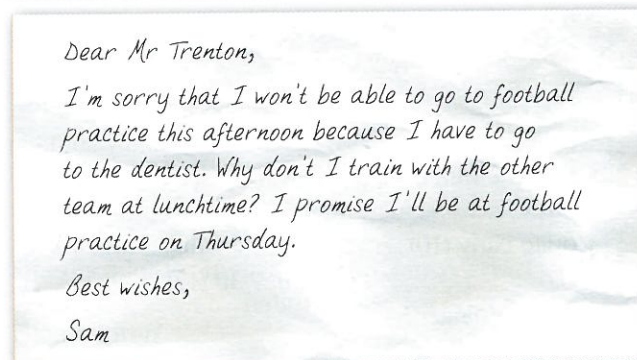 Dear Mr Trenton,
I'm sorry that I won't be able to go to football
practice this afternoon because I have to go
to the dentist. Why don't I train with the other
team at lunchtime? I promise I'll be at football
practice on Thursday.
Best wishes,
Sam